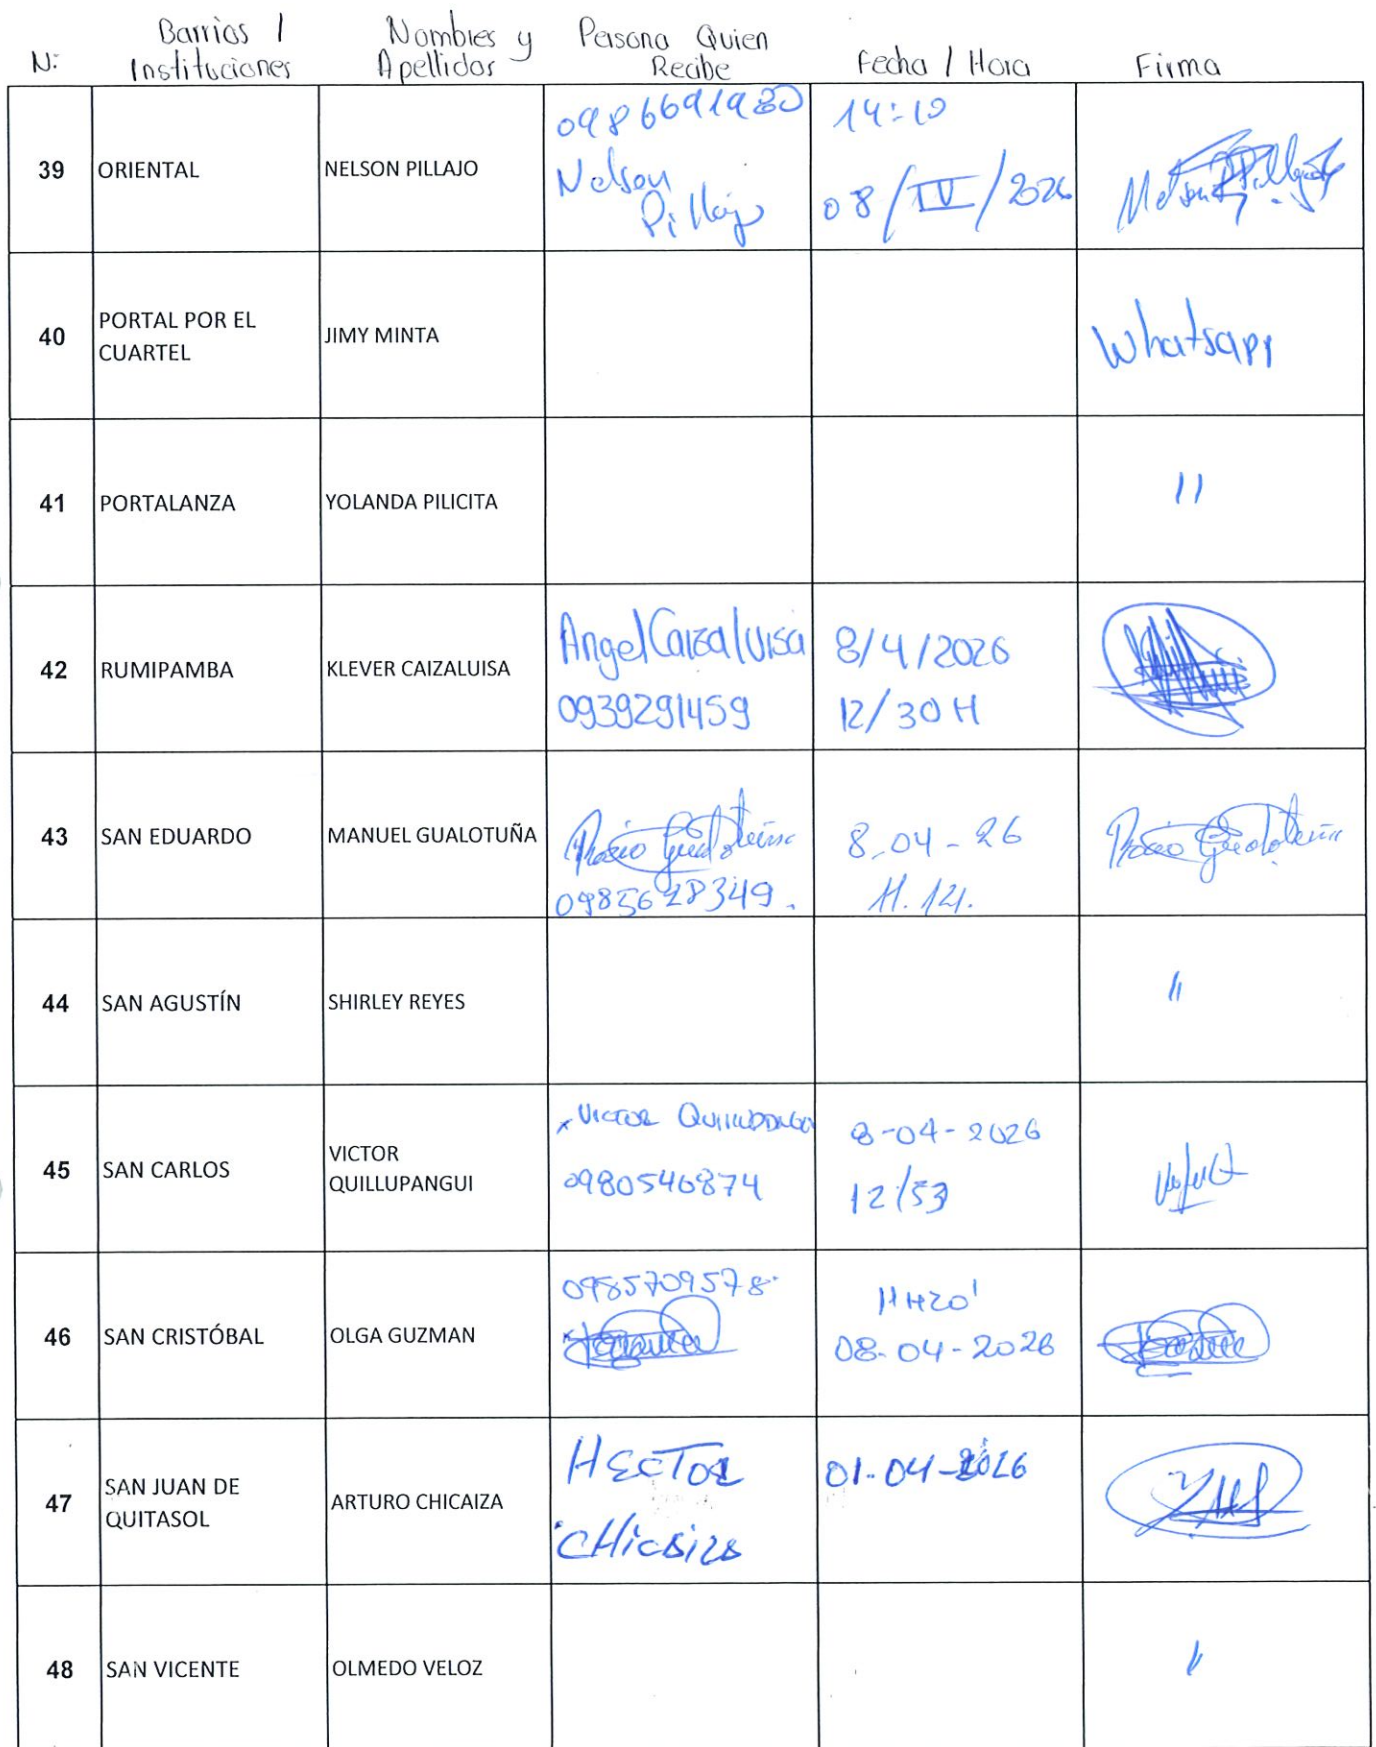 N: Barrios / Instituciones Nombres y Apellidos Persona Quien Recibe Fecha / Hora Firma
39 ORIENTAL NELSON PILLAJO
Nelson Pillajo
08/IV/2026
40 PORTAL POR EL CUARTEL JIMY MINTA Whatsapp
41 PORTALANZA YOLANDA PILICITA 11
42 RUMIPAMBA KLEVER CAIZALUISA Angel Caizaluisa 8/4/2026
0939291459 12/30 H
43 SAN EDUARDO MANUEL GUALOTUÑA 8-04-26
0985628349. 11.14.
44 SAN AGUSTÍN SHIRLEY REYES 11
45 SAN CARLOS VICTOR QUILLUPANGUI x VICTOR 8-04-2026
0980546874 12/53
46 SAN CRISTÓBAL OLGA GUZMAN 0985709578 11H20'
08-04-2026
47 SAN JUAN DE QUITASOL ARTURO CHICAIZA HECTOR CHICAIZA 01-04-2026
48 SAN VICENTE OLMEDO VELOZ 11